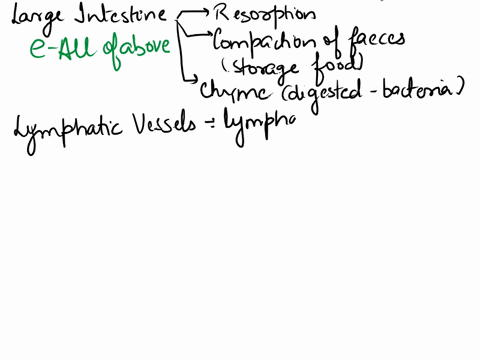 Large Intestine → Resorption
e-All of above → Compaction of faeces
(storage food)
→ Chyme (digested - bacteria)
Lymphatic Vessels ÷ Lympha